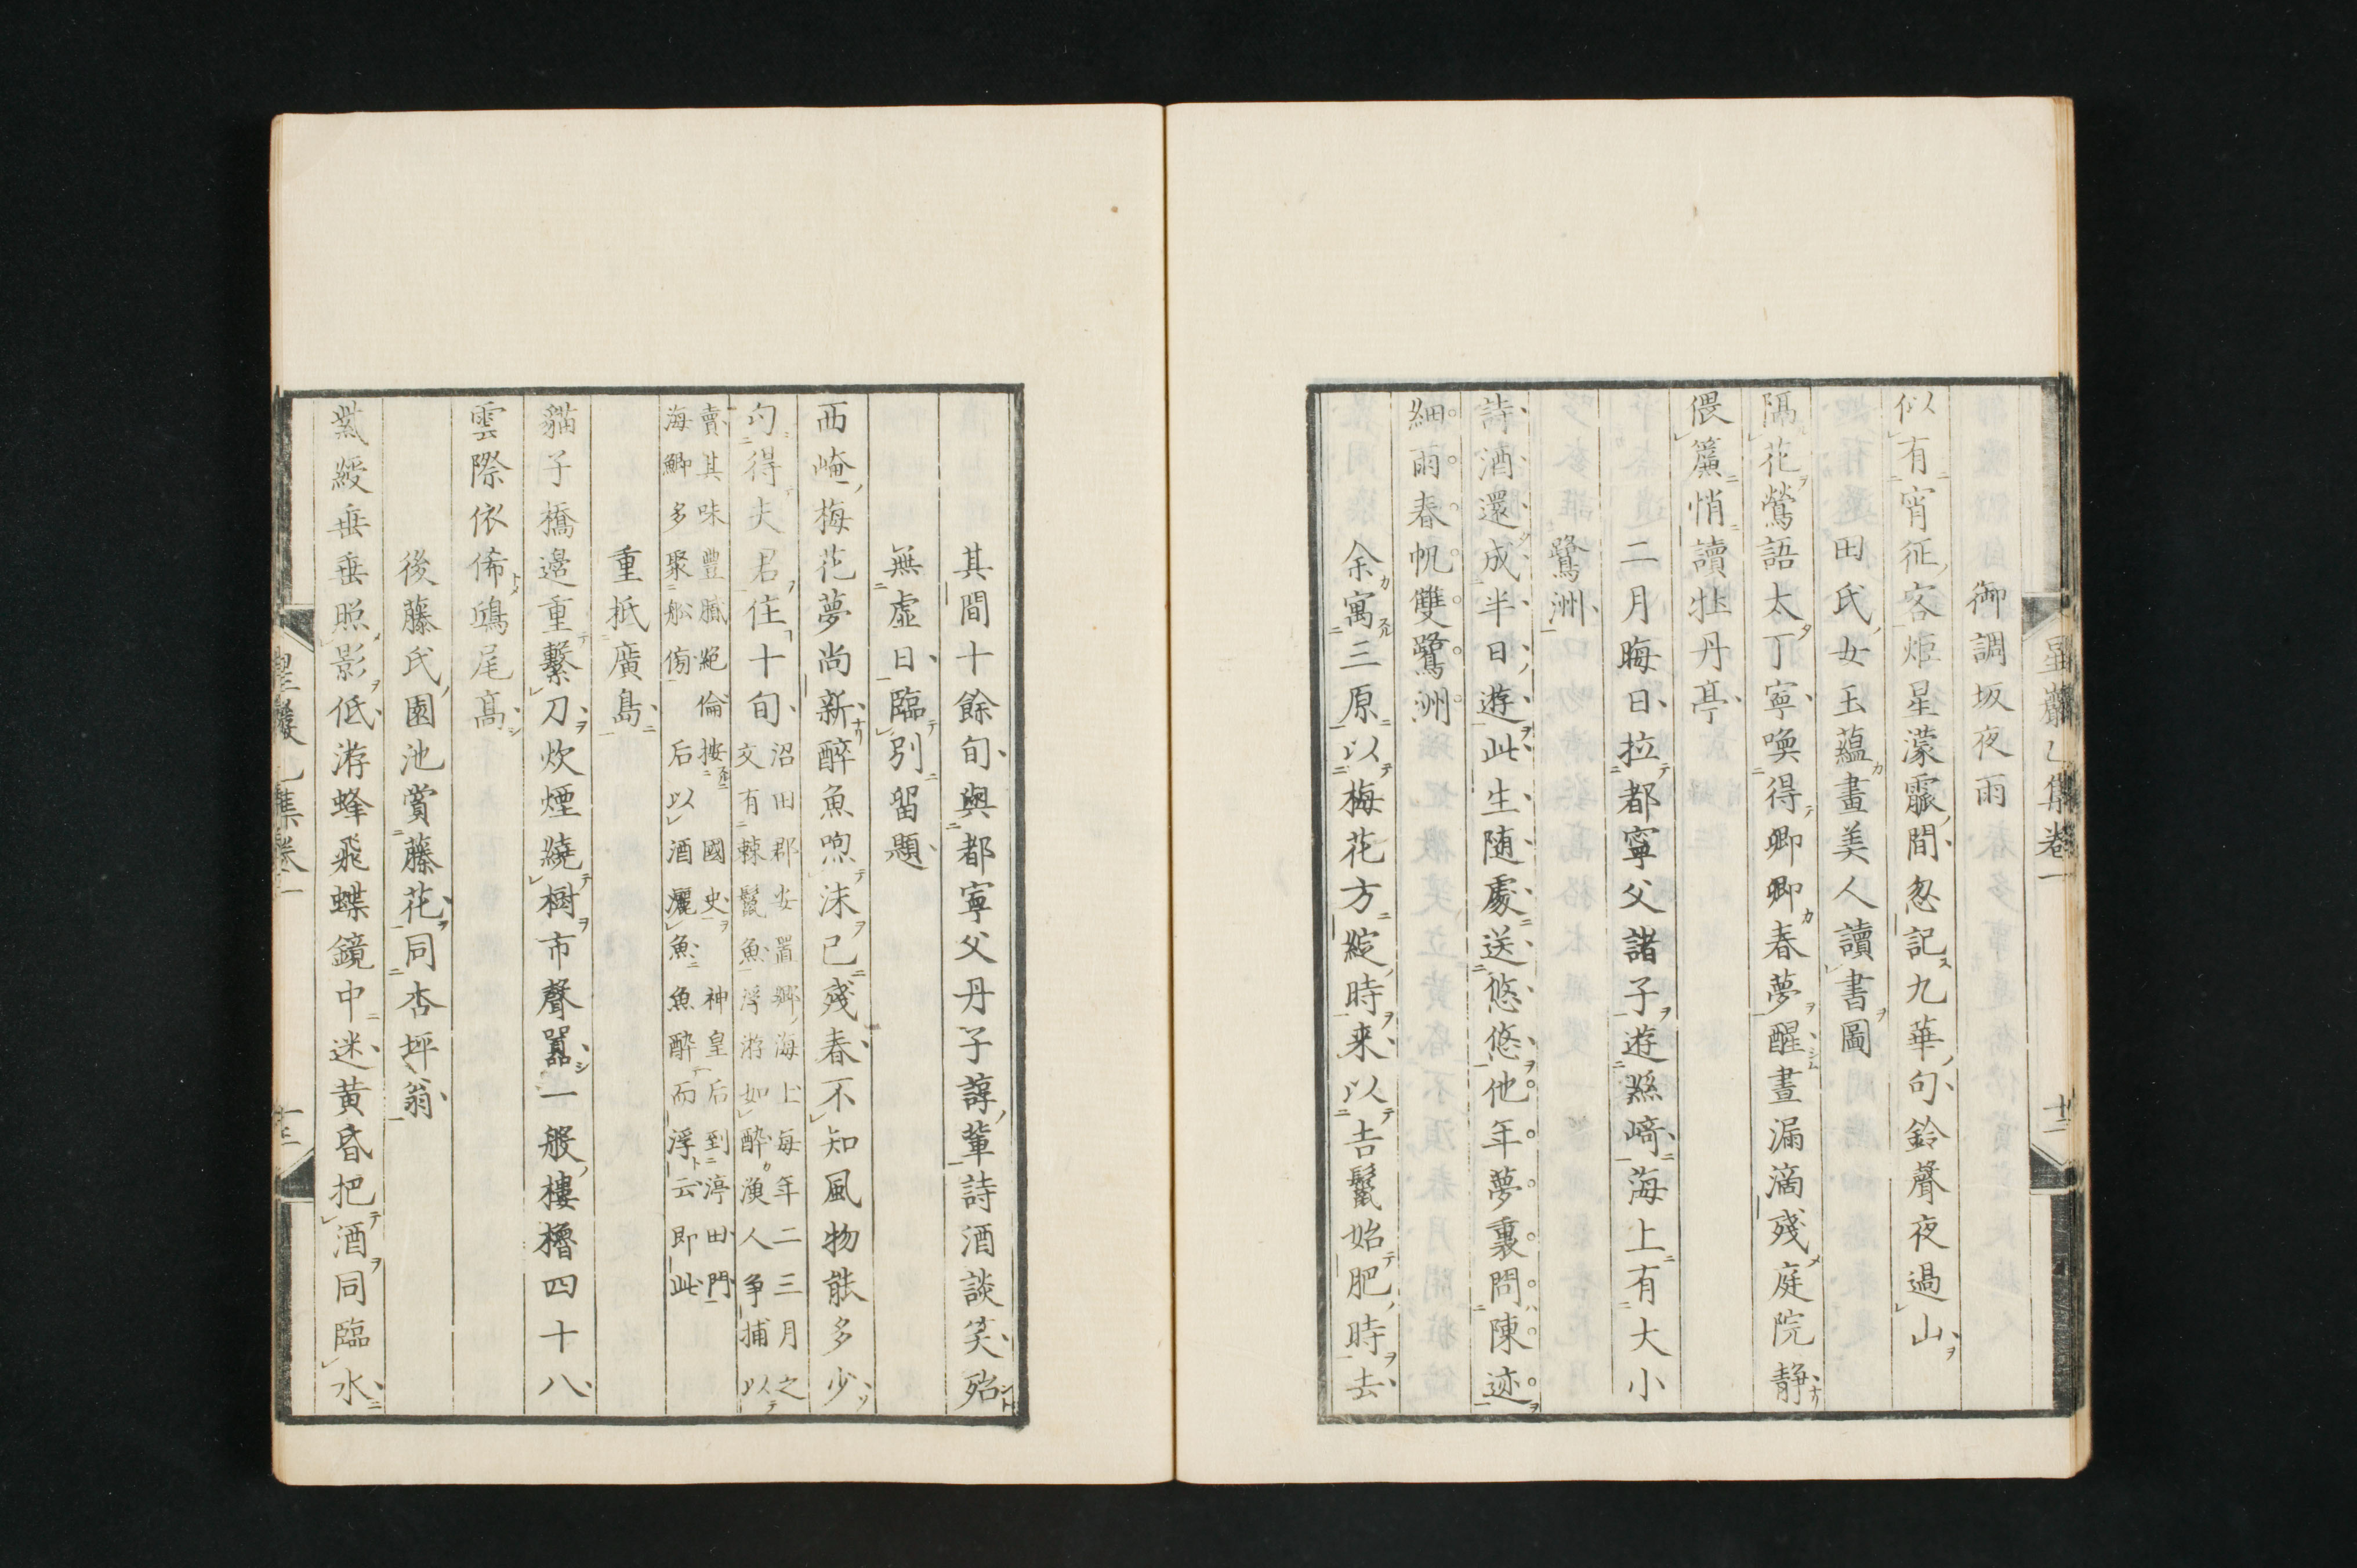 星巖乙集卷一
十二
御調坂夜雨
似有宵征客炬星濛霢間忽記九華句鈴聲夜過山
田氏女玉蘊畫美人讀書圖
隔花鶯語太丁寧喚得卿卿春夢醒晝漏滴殘庭院靜
偎簾悄讀牡丹亭
二月晦日拉都寧父諸子遊㷩﨑海上有大小
鷺洲
詩酒還成半日遊此生随處送悠悠他年夢裏問陳迹
細雨春帆雙鷺洲
余寓三原以梅花方綻時来以吉鬣始肥時去
其間十餘旬與都寧父丹子諄輩詩酒談笑殆
無虛日臨別留題
西崦梅花夢尚新醉魚喣沫已殘春不知風物能多少
勾得夫君住十旬
沼田郡安置郷海上每年二三月之
交有棘鬣魚浮游如酔漁人争捕以
賣其味豐膩絕倫按國史神皇后到渟田門
海鯽多聚舩傍后以酒灑魚魚酔而浮云即此
重抵廣島
貓子橋邉重繫刀炊煙繞樹市聲嚣一般樓櫓四十八
雲際依俙鴟尾髙
後藤氏園池賞藤花同杏坪翁
紫綬垂垂照影低游蜂飛蝶鏡中迷黄昏把酒同臨水
星巖乙集卷一
十三